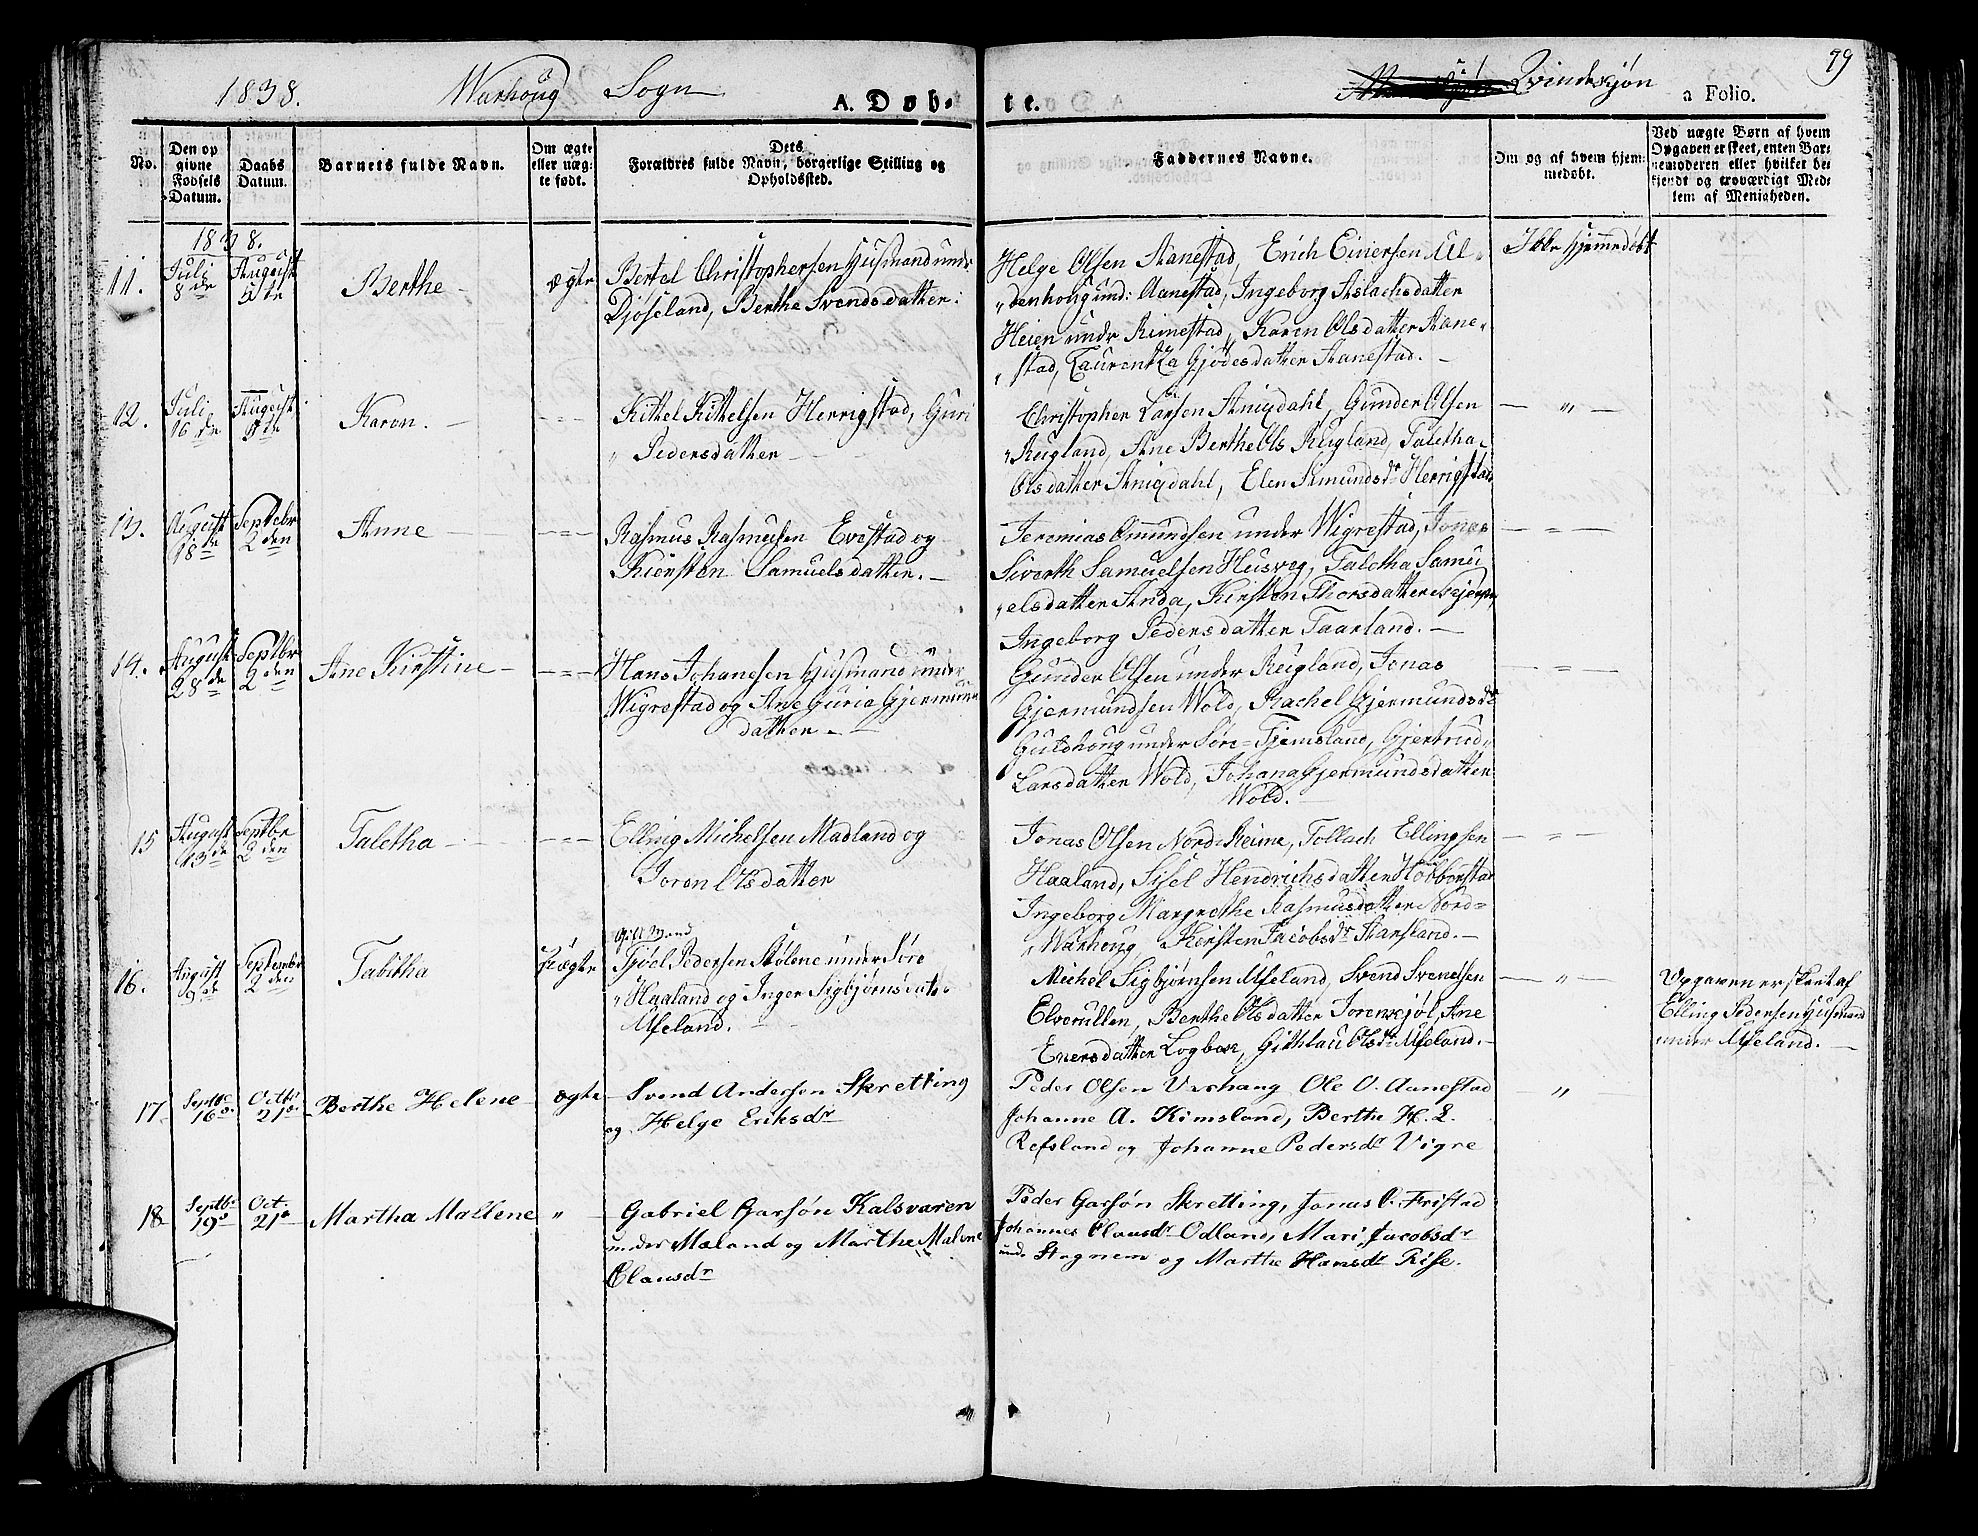 1838. Warhoug Sogn A. Døbte. Qvindekjøn a Folio. 79
No. Den opgivne Fødsels Datum. Daabs Datum. Barnets fulde Navn. Om ægte eller uægte født. Dets Forældres fulde Navn, borgerlige Stilling og Opholdssted. Faddernes Navne. Om og af hvem hjemmedøbt. Ved uægte Børn af hvem Opgaven er skeet, enten Barnemoderen eller hvilket bekjendt og troværdigt Medlem af Menigheden.
1838.
11. Juli 8de August 5te Berthe ægte Bertel Christophersen Huusmand und:
Djøseland, Berthe Svendsdatter:
Helge Olsen Aanestad, Erich Einersen Ul-
"denhoug und: Aanestad, Ingeborg Aslachsdatter
Heien under Rimestad, Karen Olsdatter Aane-
"stad, Taurentza Gjødesdatter Aanestad.
Ikke hjemmedøbt
12. Juli 16de August 5te Karen. Kittel Kittelsen Herrigstad, Guri
" Pedersdatter
Christopher Larsen Aniqdahl, Gunder Olsen
"Rugland, Ane Berthe Ols Rugland, Taletha
Olsdatter Aniqdahl, Elen Amundsdr Herrigstad
— " —
13. August 18de Septebr 2den Anne Rasmus Rasmusen Evestad og
Kiersten Samuelsdatter.
Jeremias Omundsen under Wigrestad, Jonas
Siverth Samuelsen Husveg, Taletha Samu
"elsdatter Anda, Kirsten Thorsdatter
Ingeborg Pedersdatter Taarland.
— " —
14. August 28de Septbr 2den Ane Kirstine Hans Johanesen Huusmand under
Wigrestad og Ane Guria Gjermun
datter
Gunder Olsen under Rugland, Jonas
Gjermundsen Wold, Rachel Gjermundsdr
Guldhoug under Søre-Tjemsland, Gjertrud
Larsdatter Wold, Johana Gjermundsdatter
Wold.
— " —
15 August 13de Septbr 2den Taletha Elling Michelsen Madland og
Joren Olsdatter
Jonas Olsen Nord-Reime, Tollach Ellingsen
Haaland, Sisel Hendrichsdatter Horborstad
Ingeborg Margrethe Rasmusdatter Nord-
"Warhoug Kersten Jacobsdr Aarsland.
— " —
16. August 9de Septembr 2den Tabitha Uægte Gift Mand
Tjøel Pedersen Stølene under Søre
"Haaland og Inger Sigbjørnsdatr
Ufseland.
Michel Sigbjørnsen Ufseland, Svend Svensen
Elverullen, Berthe Olsdatter Torenskjøl, Ane
Enersdatter Logboe, Githlau Olsdr Ufseland.
— " —
Opgaven er skeet af
Elling Pedersen Huusmand
under Ufseland.
17 Septbr 16o. Octbr 21o Berthe Helene ægte Svend Andersen Skretting
og Helge Eriksdr
Peder Olsen Varhaug Ole O. Aanestad
Johanne A. Kimsland, Berthe H. L.
Refsland og Johanne Pedersdr Vigre
"
18 Septbr 19o Oct. 21o Martha Mallene " Gabriel Garsøn Kalsvaren
under Mæland og Marthe Malene
Clausdr
Peder Garsøn Skretting, Jonas O. Fristad
Johannes Clausdr Odland, Mari Jacobsdr
und Stagnem og Marthe Hansdr Rise.